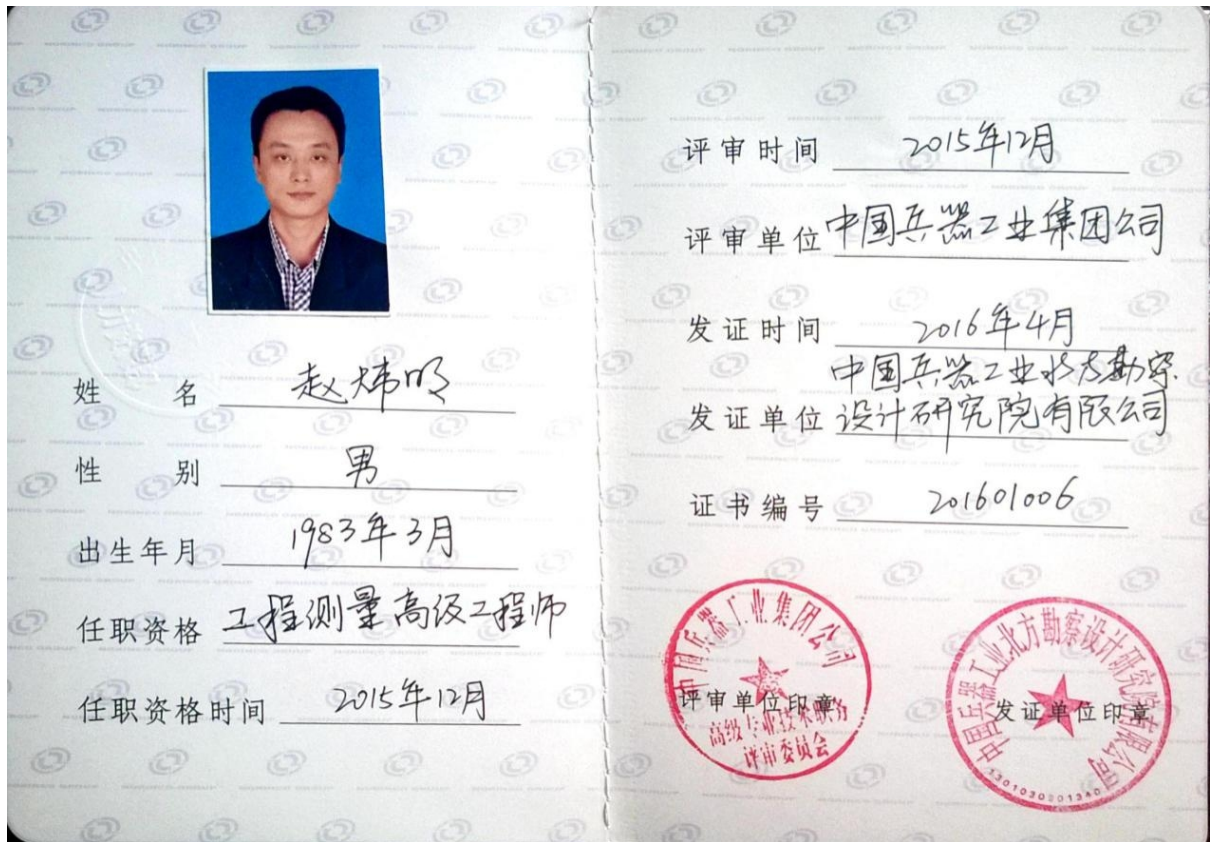 姓名 赵炜明
性别 男
出生年月 1983年3月
任职资格 工程测量高级工程师
任职资格时间 2015年12月
评审时间 2015年12月
评审单位 中国兵器工业集团公司
发证时间 2016年4月
中国兵器工业北方勘察
发证单位 设计研究院有限公司
证书编号 201601006
中国兵器工业集团公司
评审单位印章
高级专业技术职务
评审委员会
中国兵器工业北方勘察设计研究院有限公司
发证单位印章
1301030201340